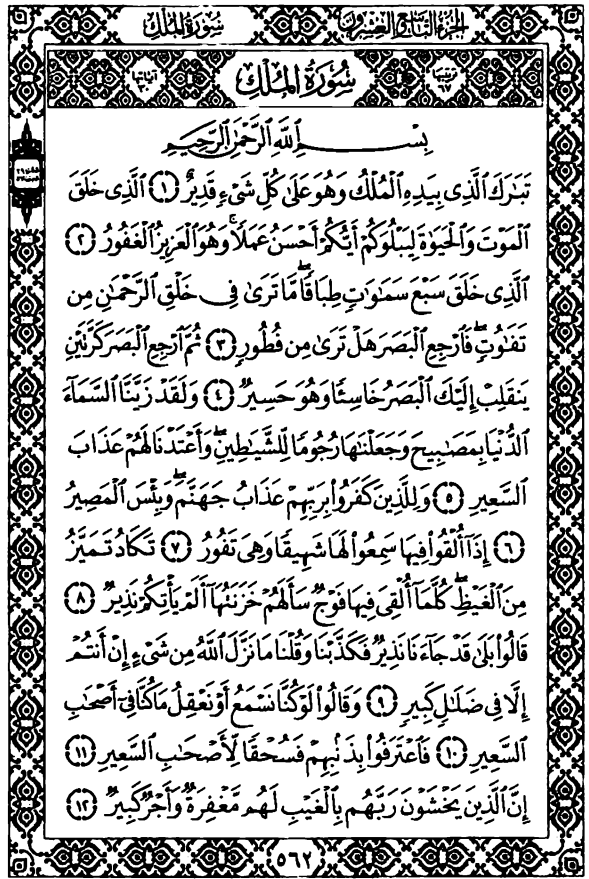 الجزء التاسع والعشرون
سورة الملك
ترتيبها ٦٧
سُورَةُ المُلْكِ
آياتها ٣٠
بِسْمِ اللَّهِ الرَّحْمَٰنِ الرَّحِيمِ
تَبَارَكَ الَّذِي بِيَدِهِ الْمُلْكُ وَهُوَ عَلَىٰ كُلِّ شَيْءٍ قَدِيرٌ ١ الَّذِي خَلَقَ
الْمَوْتَ وَالْحَيَاةَ لِيَبْلُوَكُمْ أَيُّكُمْ أَحْسَنُ عَمَلًا ۚ وَهُوَ الْعَزِيزُ الْغَفُورُ ٢
الَّذِي خَلَقَ سَبْعَ سَمَاوَاتٍ طِبَاقًا ۖ مَا تَرَىٰ فِي خَلْقِ الرَّحْمَٰنِ مِن
تَفَاوُتٍ ۖ فَارْجِعِ الْبَصَرَ هَلْ تَرَىٰ مِن فُطُورٍ ٣ ثُمَّ ارْجِعِ الْبَصَرَ كَرَّتَيْنِ
يَنقَلِبْ إِلَيْكَ الْبَصَرُ خَاسِئًا وَهُوَ حَسِيرٌ ٤ وَلَقَدْ زَيَّنَّا السَّمَاءَ
الدُّنْيَا بِمَصَابِيحَ وَجَعَلْنَاهَا رُجُومًا لِّلشَّيَاطِينِ ۖ وَأَعْتَدْنَا لَهُمْ عَذَابَ
السَّعِيرِ ٥ وَلِلَّذِينَ كَفَرُوا بِرَبِّهِمْ عَذَابُ جَهَنَّمَ ۖ وَبِئْسَ الْمَصِيرُ
٦ إِذَا أُلْقُوا فِيهَا سَمِعُوا لَهَا شَهِيقًا وَهِيَ تَفُورُ ٧ تَكَادُ تَمَيَّزُ
مِنَ الْغَيْظِ ۖ كُلَّمَا أُلْقِيَ فِيهَا فَوْجٌ سَأَلَهُمْ خَزَنَتُهَا أَلَمْ يَأْتِكُمْ نَذِيرٌ ٨
قَالُوا بَلَىٰ قَدْ جَاءَنَا نَذِيرٌ فَكَذَّبْنَا وَقُلْنَا مَا نَزَّلَ اللَّهُ مِن شَيْءٍ إِنْ أَنتُمْ
إِلَّا فِي ضَلَالٍ كَبِيرٍ ٩ وَقَالُوا لَوْ كُنَّا نَسْمَعُ أَوْ نَعْقِلُ مَا كُنَّا فِي أَصْحَابِ
السَّعِيرِ ١٠ فَاعْتَرَفُوا بِذَنبِهِمْ فَسُحْقًا لِّأَصْحَابِ السَّعِيرِ ١١
إِنَّ الَّذِينَ يَخْشَوْنَ رَبَّهُم بِالْغَيْبِ لَهُم مَّغْفِرَةٌ وَأَجْرٌ كَبِيرٌ ١٢
٥٦٢